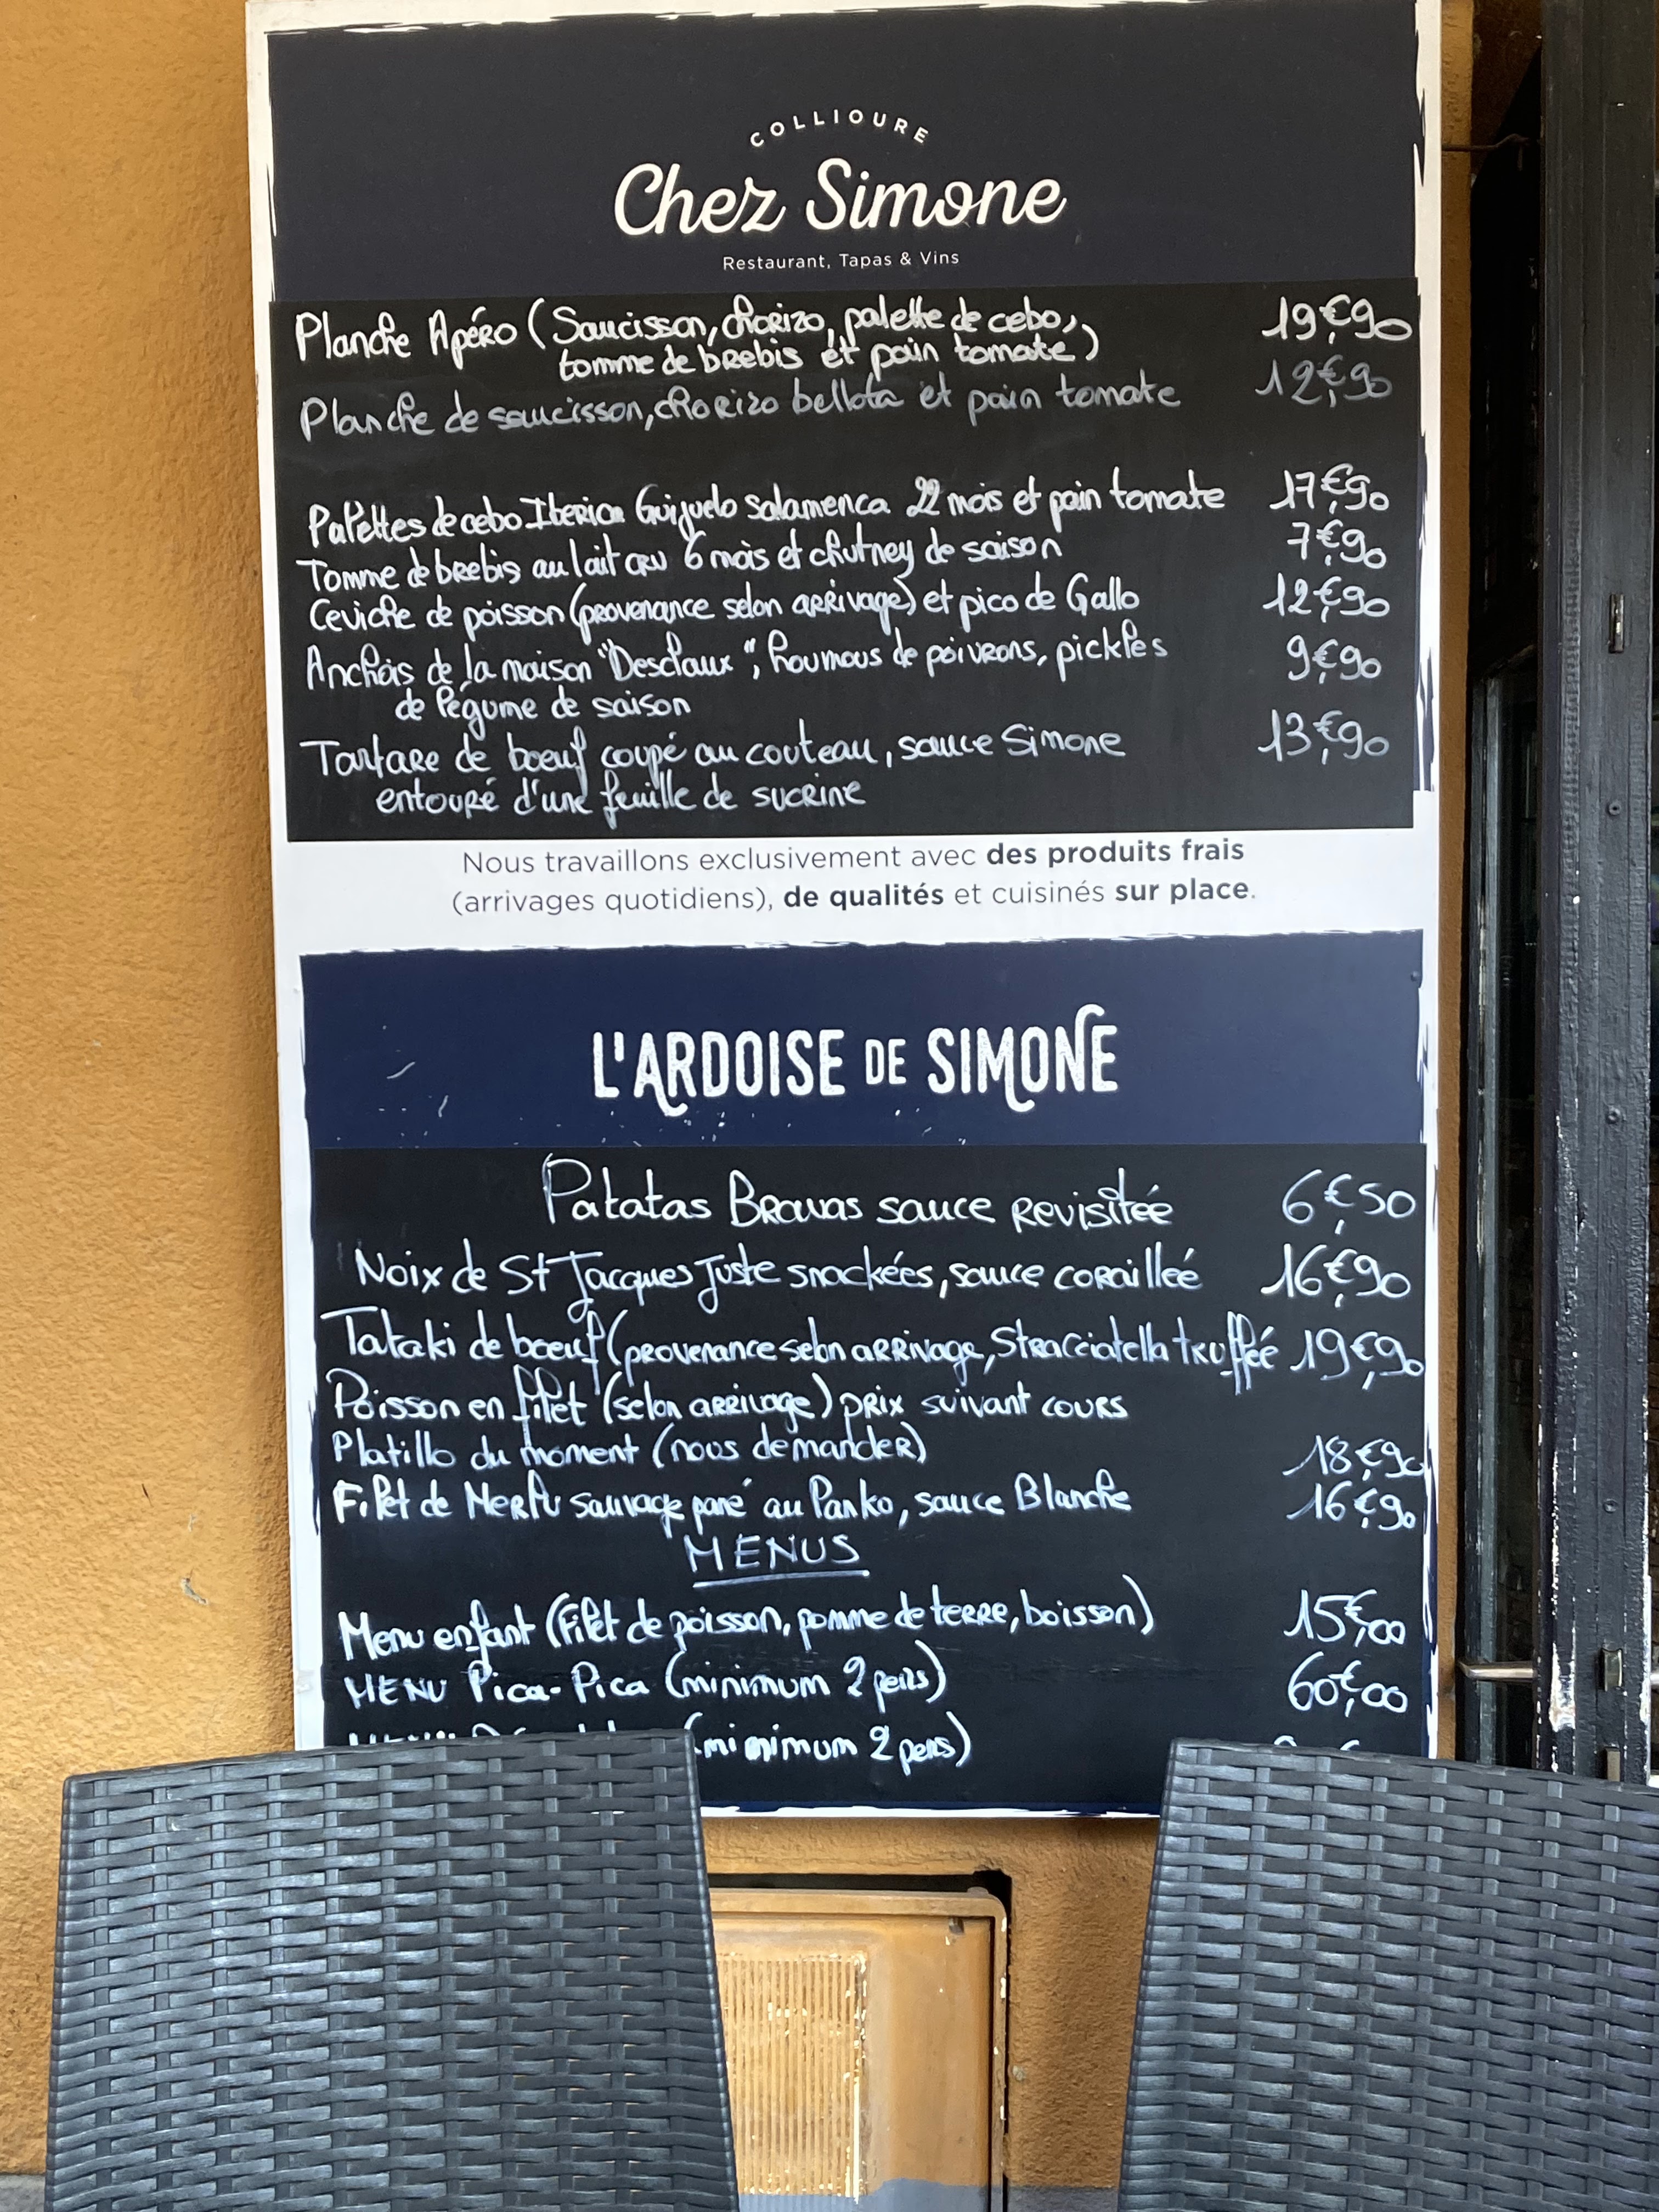 COLLIOURE
Chez Simone
Restaurant, Tapas & Vins
Planche Apéro (Saucisson, chorizo, palette de cebo, 19€,90
tomme de brebis et pain tomate)
Planche de saucisson, chorizo bellota et pain tomate 12€,90
Palettes de cebo Iberica Guijuelo Salamenca 22 mois et pain tomate 17€,90
Tomme de brebis au lait cru 6 mois et chutney de saison 7€,90
Ceviche de poisson (provenance selon arrivage) et pico de Gallo 12€,90
Anchois de la maison "Desclaux", houmous de poivrons, pickles 9€,90
de légume de saison
Tartare de boeuf coupé au couteau, sauce Simone 13€,90
entouré d'une feuille de sucrine
Nous travaillons exclusivement avec des produits frais
(arrivages quotidiens), de qualités et cuisinés sur place.
L'ARDOISE DE SIMONE
Patatas Bravas sauce revisitée 6€,50
Noix de St Jacques juste snackées, sauce corailleé 16€,90
Tataki de boeuf (provenance selon arrivage, Stracciatella truffée 19€,90
Poisson en filet (selon arrivage) prix suivant cours
Platillo du moment (nous demander) 18€,90
Filet de Merlu sauvage pané au Panko, sauce Blanche 16€,90
MENUS
Menu enfant (filet de poisson, pomme de terre, boisson) 15€,00
MENU Pica-Pica (minimum 2 pers) 60€,00
(minimum 2 pers)